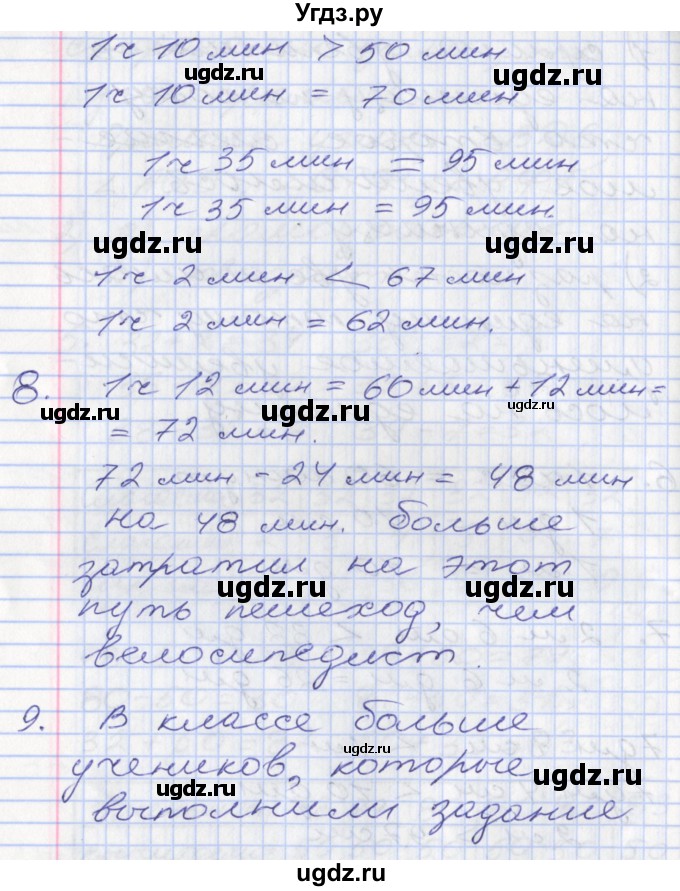 Угдз.ру
1ч 10 мин > 50 мин
ugdz.ru ugdz.ru
1ч 10 мин = 70 мин
1ч 35 мин = 95 мин
1ч 35 мин = 95 мин.
ugdz.ru ugdz.ru
1ч 2 мин < 67 мин
1ч 2 мин = 62 мин.
8. 1ч 12 мин = 60 мин + 12 мин =
ugdz.ru ugdz.ru ugdz.ru
= 72 мин.
72 мин - 24 мин = 48 мин
на 48 мин. больше
затратил на этот
ugdz.ru ugdz.ru
путь пешеход, чем
велосипедист.
ugdz.ru
9. В классе больше
ugdz.ru
учеников, которые
ugdz.ru ugdz.ru
выполнили задание
ugdz.ru